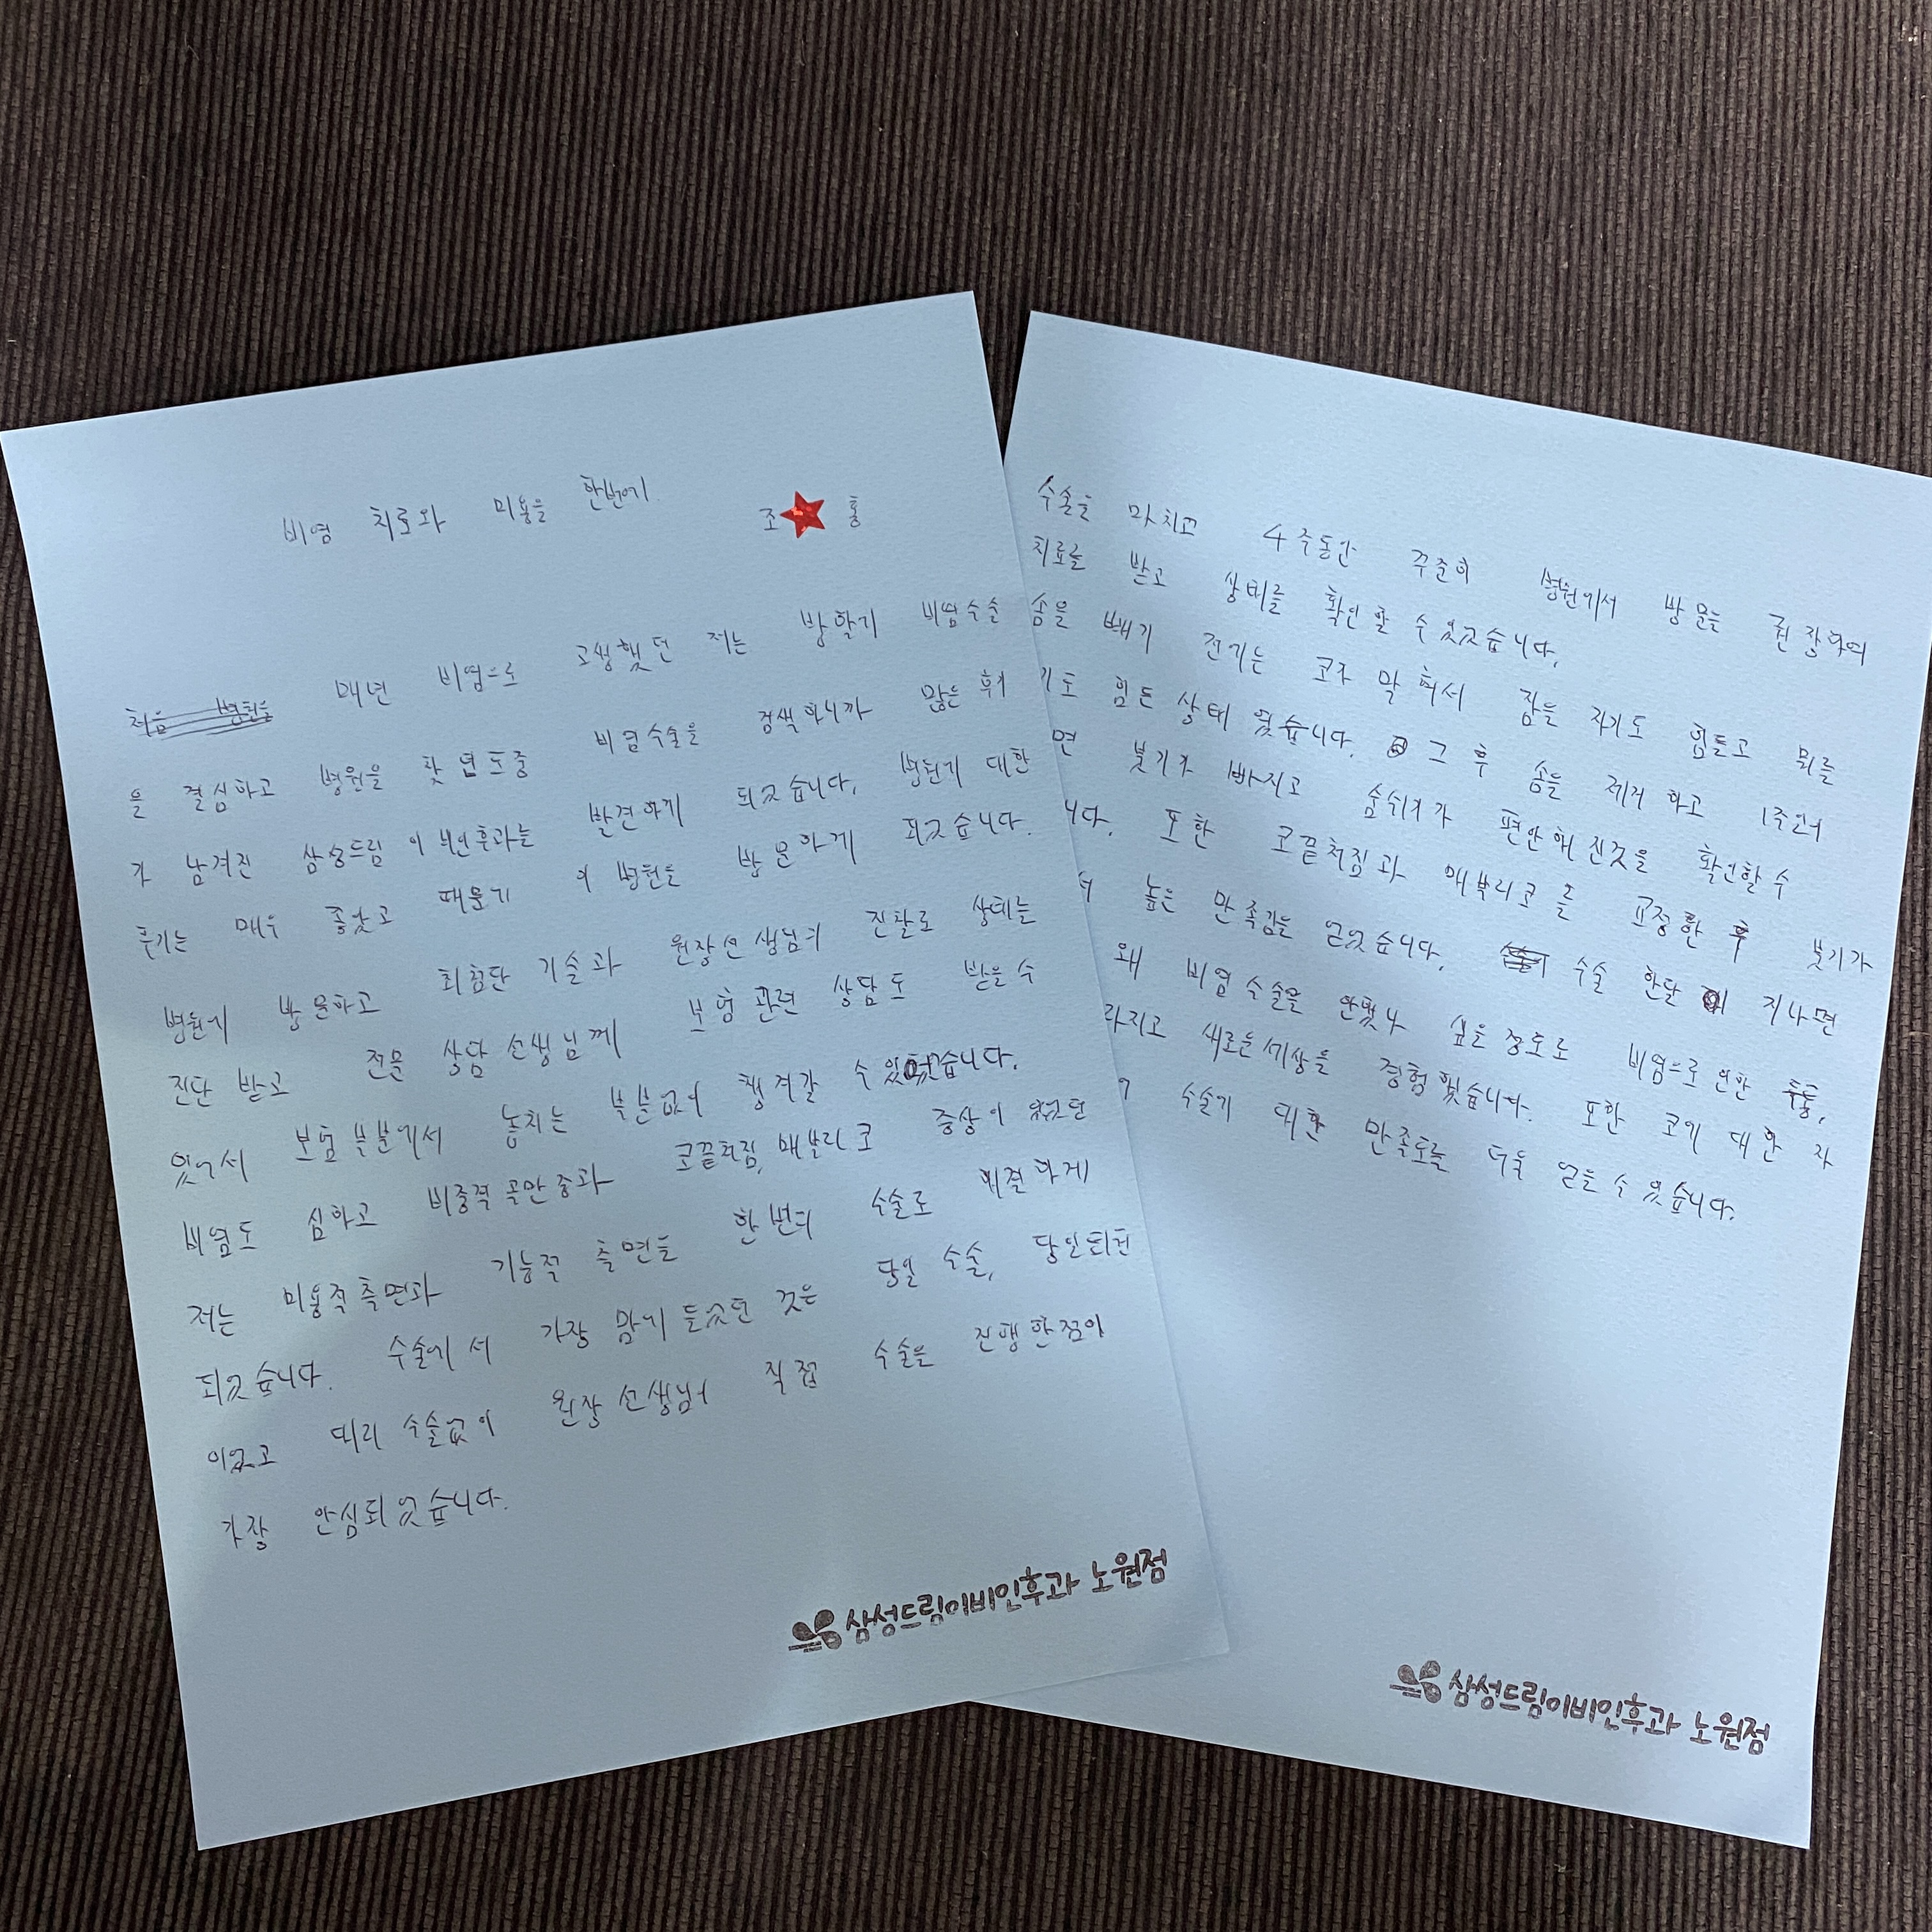 비염 치료와 미용을 한번에.
조 홍
처음 병원을 매년 비염으로 고생했던 저는 방학기 비염수술
을 결심하고 병원을 찾던 도중 비염수술을 검색하니까 많은 후기
가 남겨진 삼성드림 이비인후과는 발견하게 되었습니다. 병원에 대한
후기는 매우 좋았고 때문에 이 병원을 방문하게 되었습니다.
병원에 방문하고 최첨단 기술과 원장선생님의 진찰로 상태를
진단 받고 전문 상담 선생님께 보험 관련 상담도 받을 수
있어서 보험 부분에서 놓치는 부분없이 챙겨갈 수 있었습니다.
비염도 심하고 비중격 곡만증과 코끝처짐, 매부리코 증상이 있었던
저는 미용적측면과 기능적 측면을 한번의 수술로 해결하게
되었습니다. 수술에서 가장 맘에 들었던 것은 당일 수술, 당일퇴원
이었고 대리 수술없이 원장 선생님이 직접 수술을 진행한점이
가장 안심되었습니다.
삼성드림이비인후과 노원점
수술을 마치고 4주동안 꾸준히 병원에서 방문을 권장하여
치료를 받고 상태를 확인할 수 있었습니다.
솜을 빼기 전기는 코가 막혀서 잠을 자기도 힘들고 뭐를
기도 힘든 상태 였습니다. 그 후 솜을 제거 하고 1주간
면 붓기가 빠지고 숨쉬기가 편안해진것을 확인할수
니다. 또한 코끝처짐과 매부리코를 교정한 후 붓기가
높은 만족감을 얻었습니다. 수술 한달 지나면
왜 비염수술을 안했나 싶은 정도로 비염으로 인한 두통,
라지고 새로운세상을 경험했습니다. 또한 코에 대한 자
수술에 대한 만족도를 더욱 얻을 수 있습니다.
삼성드림이비인후과 노원점